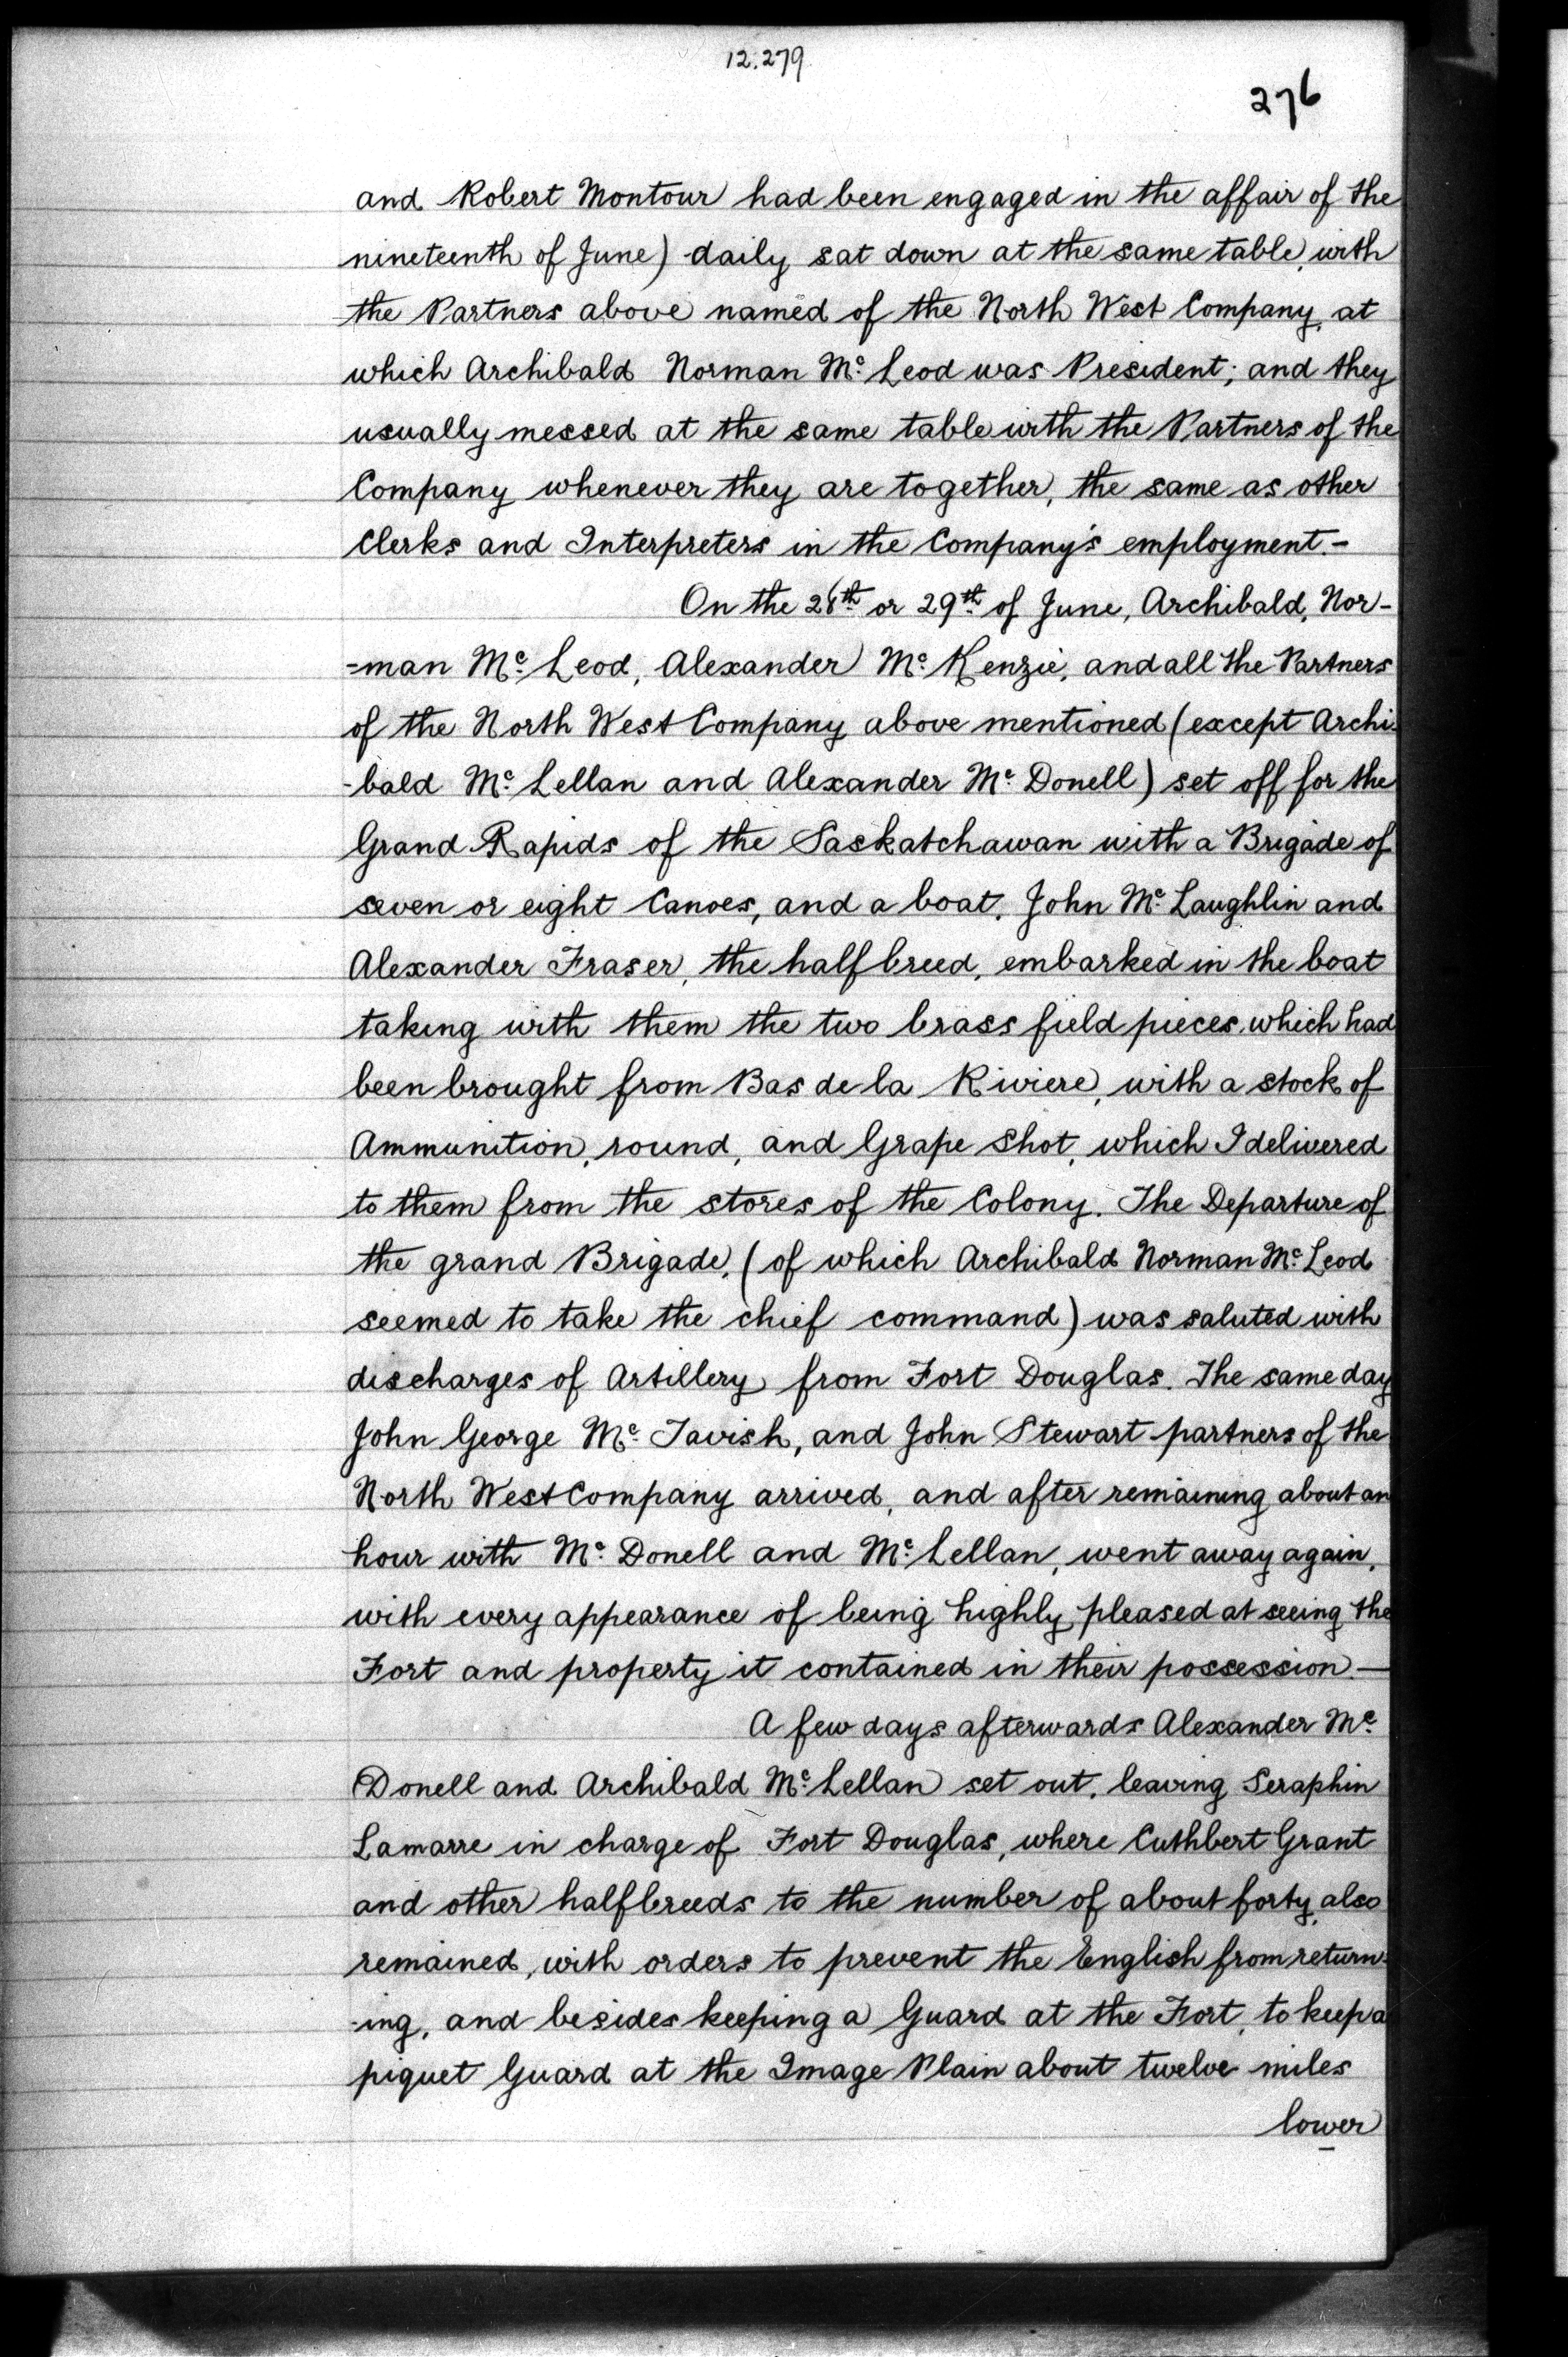 12.279
276
and Robert Montour had been engaged in the affair of the
nineteenth of June) daily sat down at the same table, with
the Partners above named of the North West Company, at
which Archibald Norman Mc Leod was President; and they
usually messed at the same table with the Partners of the
Company whenever they are together, the same as other
Clerks and Interpreters in the Company's employment.-
On the 28th or 29th of June, Archibald, Nor-
-man Mc Leod, Alexander Mc Kenzie, and all the Partners
of the North West Company above mentioned (except Archi-
-bald Mc Lellan and Alexander Mc Donell) set off for the
Grand Rapids of the Saskatchawan with a Brigade of
seven or eight Canoes, and a boat. John Mc Laughlin and
Alexander Fraser, the halfbreed, embarked in the boat
taking with them the two brass field pieces, which had
been brought from Bas de la Riviere, with a stock of
Ammunition, round, and Grape Shot, which I delivered
to them from the stores of the Colony. The Departure of
the grand Brigade, (of which Archibald Norman Mc Leod
seemed to take the chief command) was saluted with
discharges of Artillery from Fort Douglas. The same day
John George Mc Tavish, and John Stewart partners of the
North West Company arrived, and after remaining about an
hour with Mc Donell and Mc Lellan, went away again,
with every appearance of being highly pleased at seeing the
Fort and property it contained in their possession.-
A few days afterwards Alexander Mc
Donell and Archibald Mc Lellan set out, leaving Seraphin
Lamarre in charge of Fort Douglas, where Cuthbert Grant
and other halfbreeds to the number of about forty, also
remained, with orders to prevent the English from return-
-ing, and besides keeping a Guard at the Fort, to keep a
piquet Guard at the Image Plain about twelve miles
lower